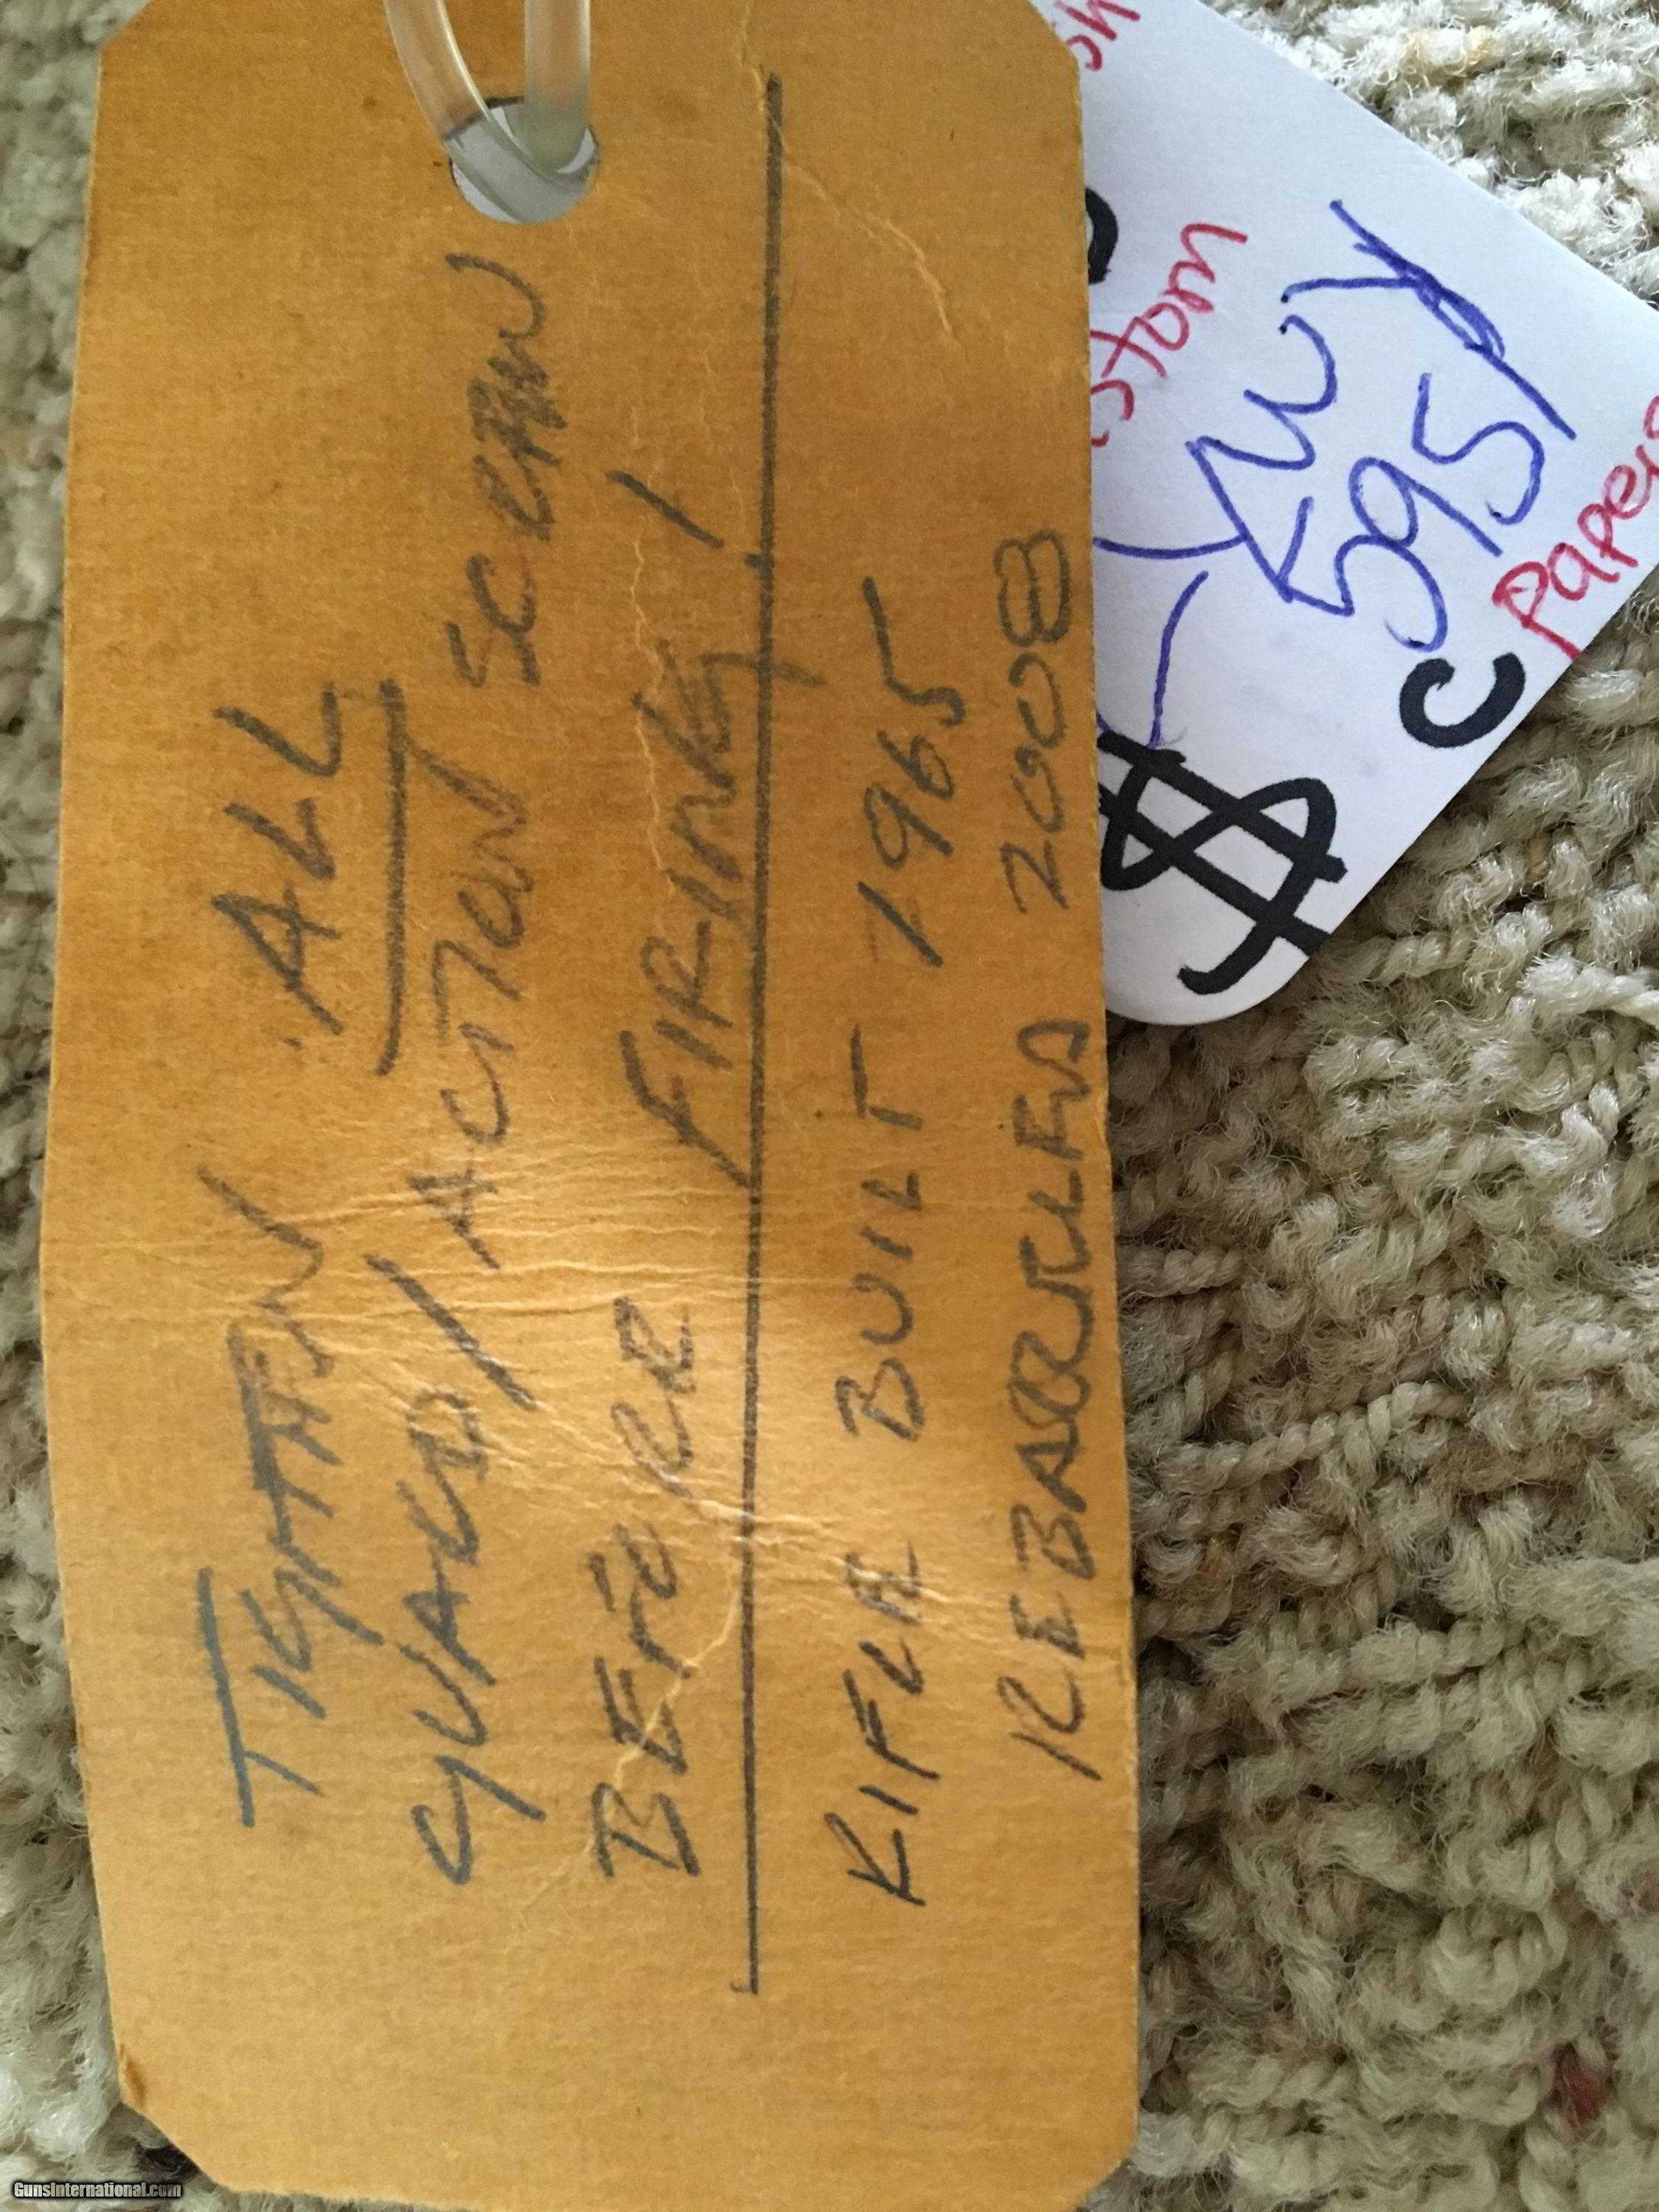 TIGHTEN ALL
GUARD/ACTION SCREW
BEFORE FIRING!
RIFLE BUILT 1965
REBARRELED 2008
stom
5951
Paper
$
GunsInternational.com